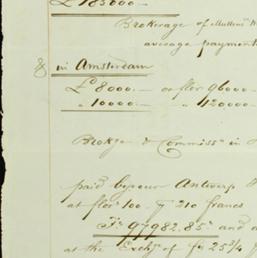 £183000—
Brokerage of Mullens
average payment
& in Amsterdam
£8000.— or flor 96000—
„ 10000.— „ 120000—
Brokge & Commissn in
paid by your Antwerp
at flor 100. 210 francs
Frs 97982.85c and
at the Exchge of fr 25 3/4